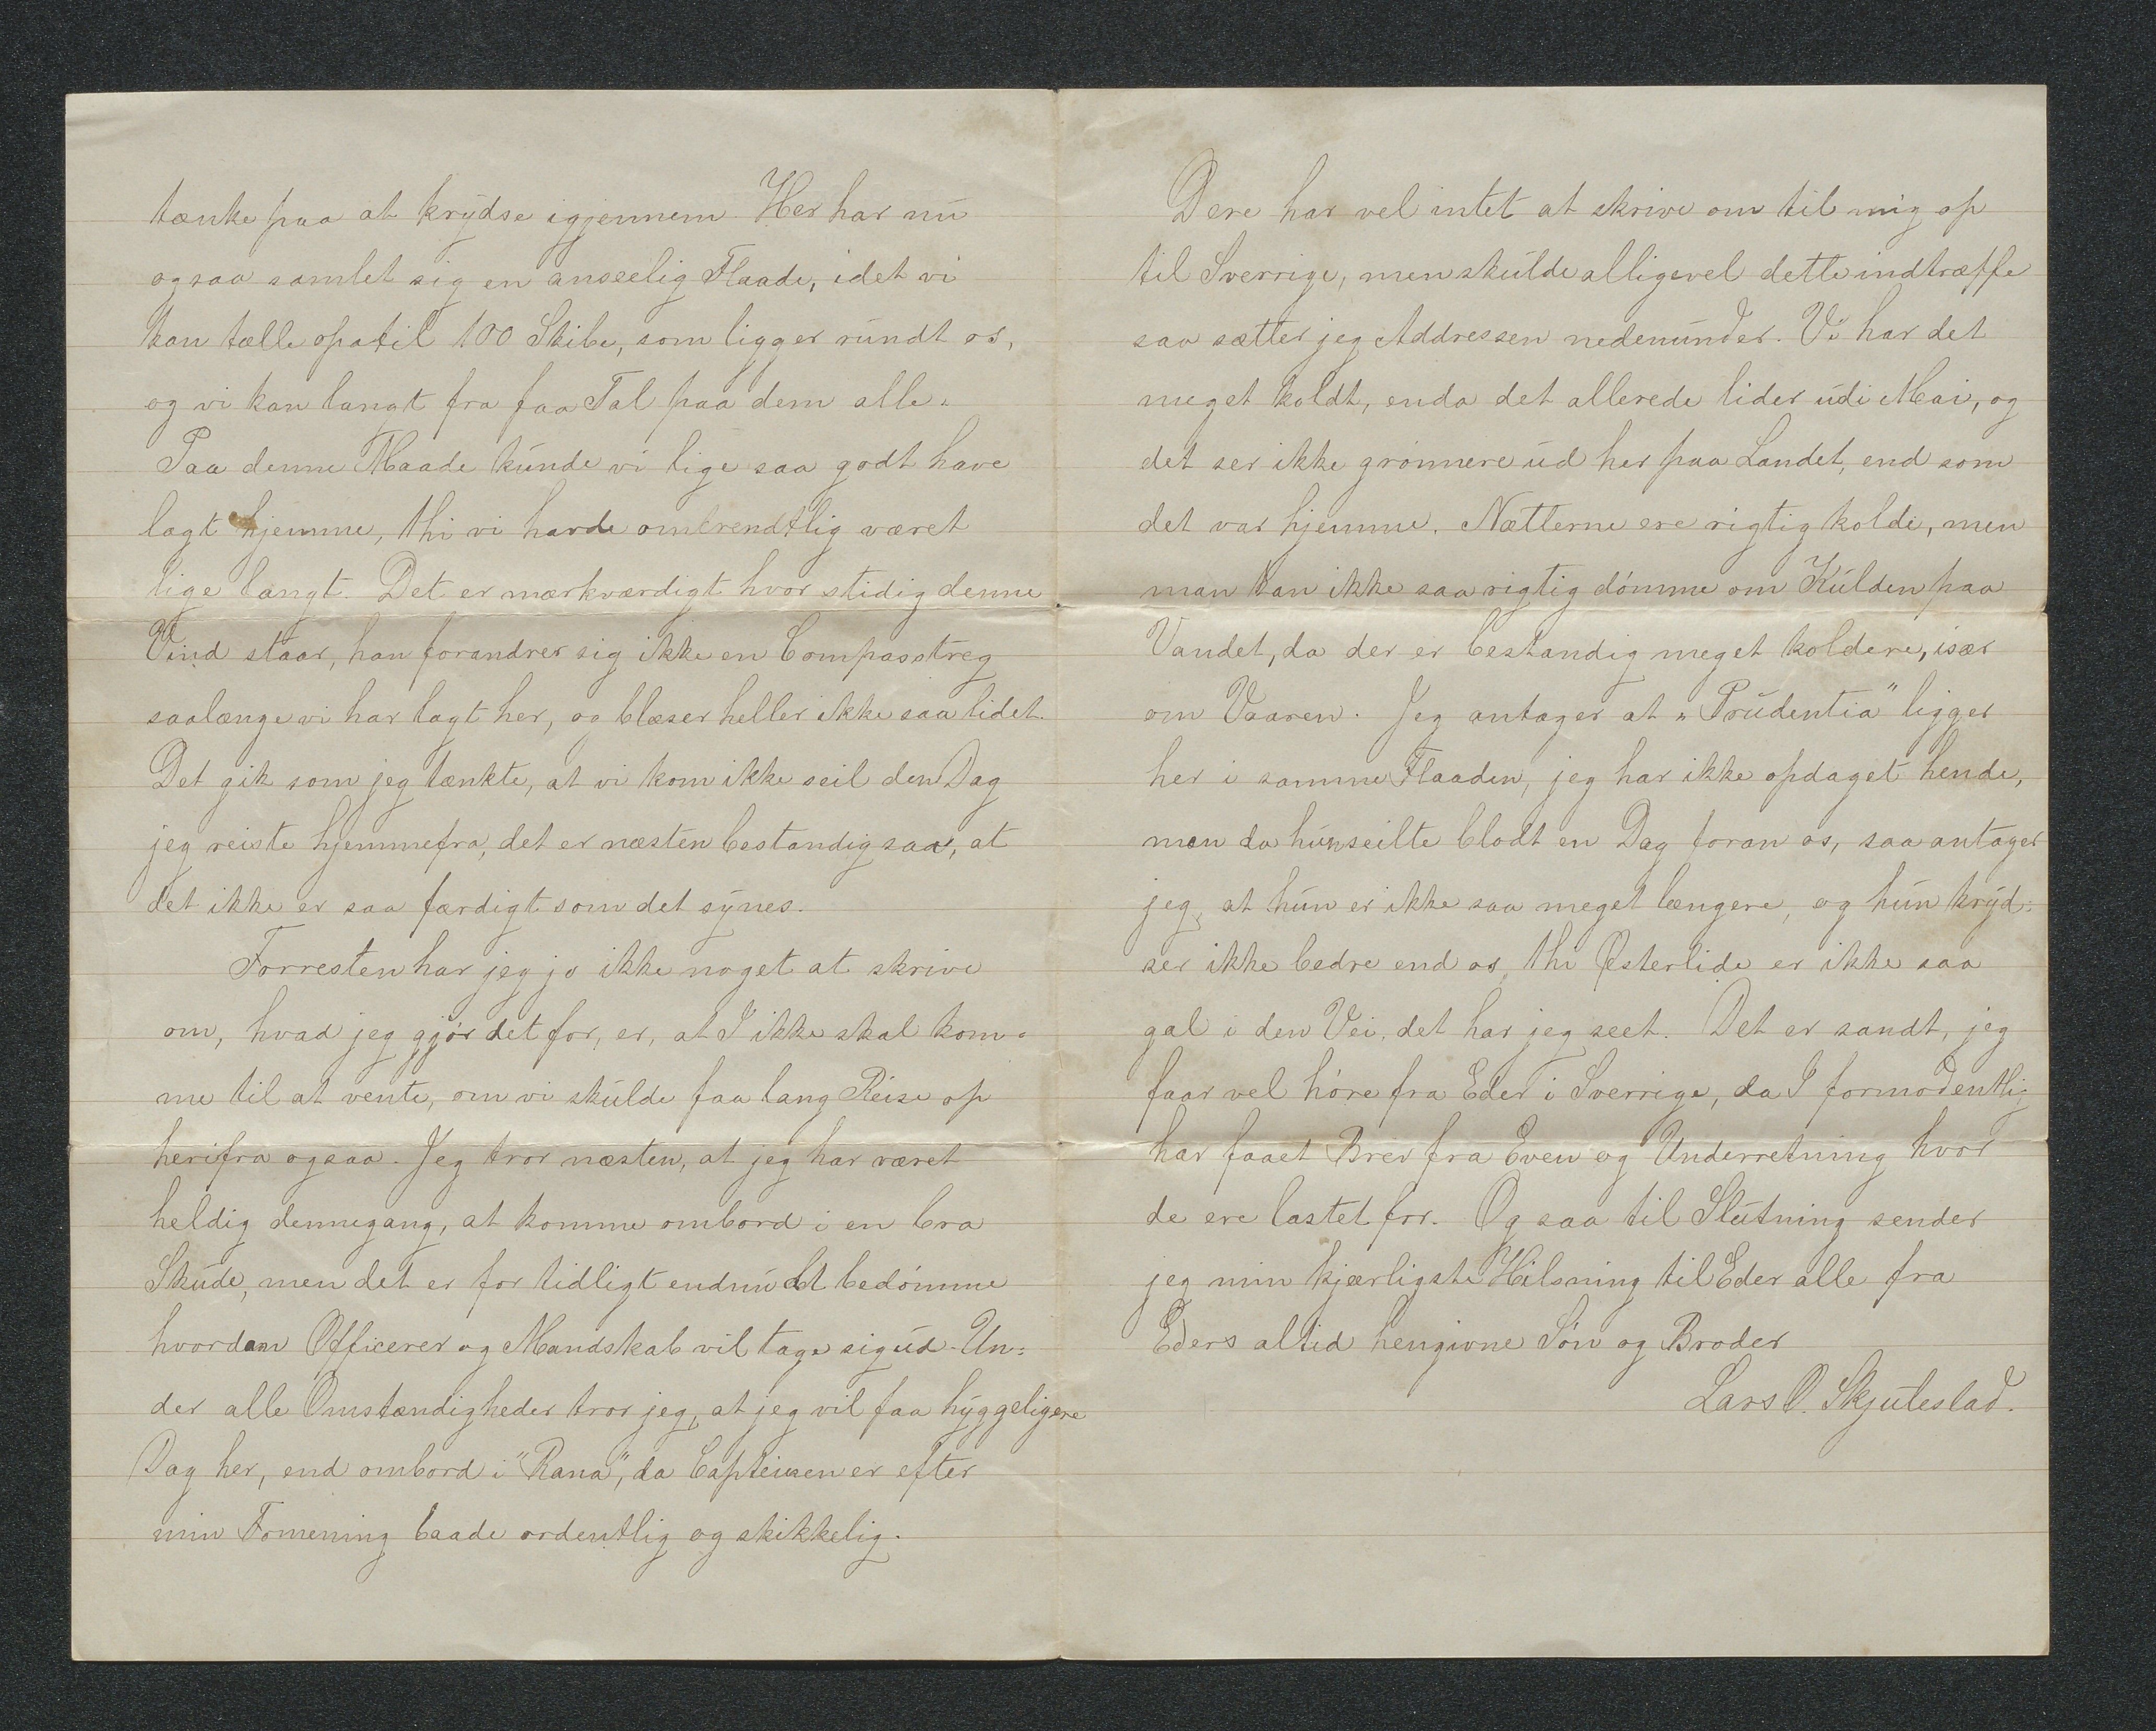 tænke paa at krydse igjennem. Her har nu
ogsaa samlet sig en anseelig Flaade, idet vi
kan tælle op til 100 Skibe, som ligger rundt os,
og vi kan langt fra faa Tal paa dem alle.
Paa denne Maade kunde vi lige saa godt have
lagt hjemme, thi vi havde omtrendtlig været
lige langt. Det er mærkværdigt hvor stidig denne
Vind staar, han forandrer sig ikke en Compasstreg
saalænge vi har lagt her, og blæser heller ikke saa lidet.
Det gik som jeg tænkte, at vi kom ikke seil den Dag
jeg reiste hjemmefra, det er næsten bestandig saa, at
det ikke er saa færdigt som det synes.
Forresten har jeg jo ikke noget at skrive
om, hvad jeg gjør det for, er, at I ikke skal kom-
me til at vente, om vi skulde faa lang Reise op
herifra ogsaa. Jeg tror næsten, at jeg har været
heldig dennegang, at komme ombord i en bra
Skude, men det er for tidligt endnu at bedømme
hvordan Officerer og Mandskab vil tage sig ud. Un-
der alle Omstændigheder tror jeg, at jeg vil faa hyggeligere
Dag her, end ombord i "Rana", da Capteinen er efter
min Formening baade ordentlig og skikkelig.
Dere har vel intet at skrive om til mig op
til Sverrige, men skulde alligevel dette indtræffe
saa sætter jeg Addressen nedenunder. Vi har det
meget koldt, enda det allerede lider udi Mai, og
det ser ikke grønnere ud her paa Landet, end som
det var hjemme. Nætterne ere rigtig kolde, men
man kan ikke saa rigtig dømme om Kulden paa
Vandet, da der er bestandig meget koldere, især
om Vaaren. Jeg antager at „Prudentia" ligger
her i samme Flaaden, jeg har ikke opdaget hende,
men da hun seilte blodt en Dag foran os, saa antager
jeg, at hun er ikke saa meget længere, og hun kryd-
ser ikke bedre end os, thi Østerlide er ikke saa
gal i den Vei, det har jeg seet. Det er sandt, jeg
faar vel høre fra Eder i Sverrige, da I formodentlig
har faaet Brev fra Even og Underretning hvor
de ere lastet for. Og saa til Slutning sender
jeg min kjærligste Hilsning til Eder alle fra
Eders altid hengivne Søn og Broder
Lars O. Skjulestad.